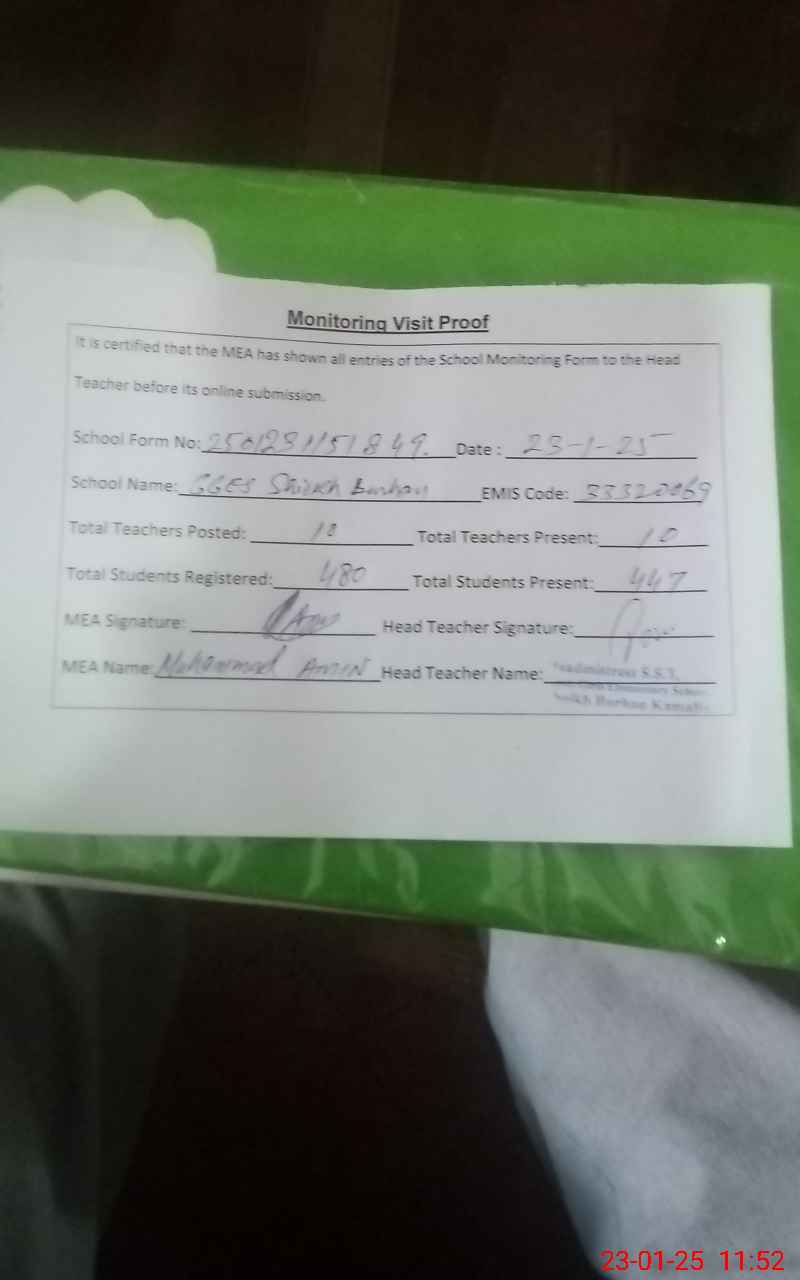 Monitoring Visit Proof
It is certified that the MEA has shown all entries of the School Monitoring Form to the Head
Teacher before its online submission.
School Form No: 2501231151849. Date : 23-1-25
School Name: GGES Shiekh Burhan EMIS Code: 33320069
Total Teachers Posted: 10 Total Teachers Present: 10
Total Students Registered: 480 Total Students Present: 447
MEA Signature: Head Teacher Signature:
MEA Name: Muhammad AMIN Head Teacher Name: Headmistress S.S.T.
Elementary School
Sheikh Burhan Kamalia
23-01-25 11:52